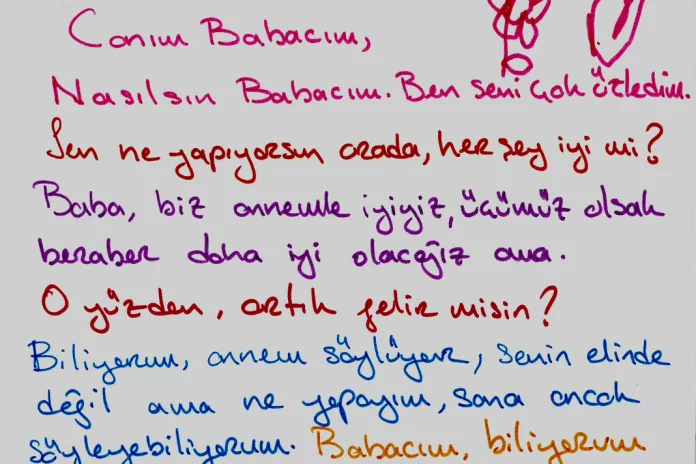 Canım Babacım,
Nasılsın Babacım. Ben seni çok özledim.
Sen ne yapıyorsun orada, her şey iyi mi?
Baba, biz annemle iyiyiz, üçümüz olsak
beraber daha iyi olacağız ama.
O yüzden, artık gelir misin?
Biliyorum, annem söylüyor, senin elinde
değil ama ne yapayım, sana ancak
söyleyebiliyorum. Babacım, biliyorum